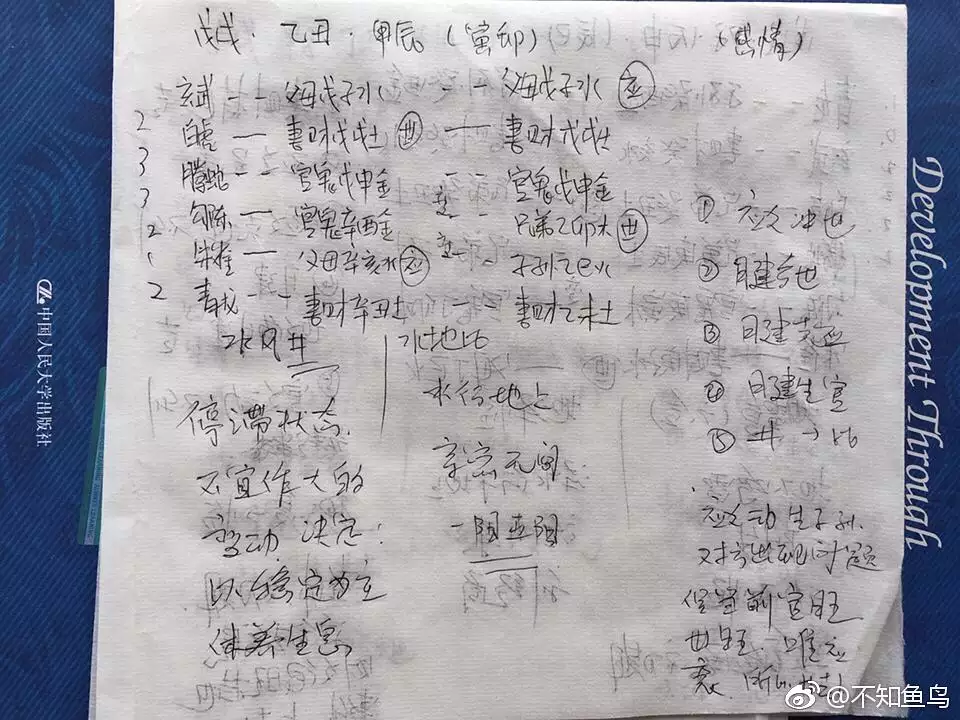 戊戌·乙丑·甲辰(寅卯) (感情)
玄武 -- 父母戊子水 -- 父母戊子水 应
2 白虎 — 妻财戊戌土 世 — 妻财戊戌土
3 腾蛇 -- 官鬼戊申金 -- 官鬼戊申金
3 勾陈 — 官鬼辛酉金 -- 兄弟乙卯木 世
2 朱雀 — 父母辛亥水 应 -- 子孙乙巳火
2 青龙 -- 妻财辛丑土 妻财乙未土
水风井
水地比
停滞状态
不宜作大的
变动 决定:
以稳定为主
休养生息
水行地上
亲密无间
① 应爻冲世
② 日建合世
③ 日建克应
④ 日建生官
⑤ 井→比
应爻动生子孙
对方出现问题
世旺
中国人民大学出版社
Development Through
@不知鱼鸟